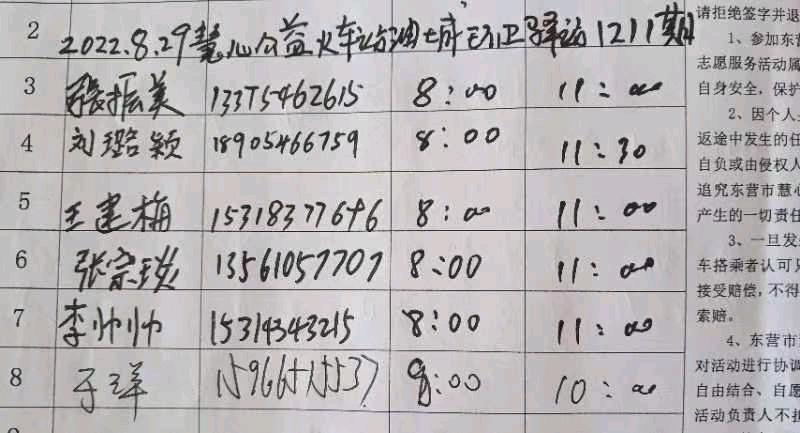 2 2022.8.29慧心公益火车站油城环卫驿站1211期
3 張振美 13375462615 8:00 11:00
4 刘璐颖 18905466759 8:00 11:30
5 王建梅 15318377696 8:00 11:00
6 张宗琰 13561057707 8:00 11:00
7 李帅帅 15314343215 8:00 11:00
8 于洋 15966515537 8:00 10:00
请拒绝签字并退
1、参加东营
志愿服务活动属
自身安全，保护
2、因个人
返途中发生的任
自负或由侵权人
追究东营市慧心
产生的一切责任
3、一旦发
车搭乘者认可只
接受赔偿，不得
索赔。
4、东营市
对活动进行协调
自由结合、自愿
活动负责人不担